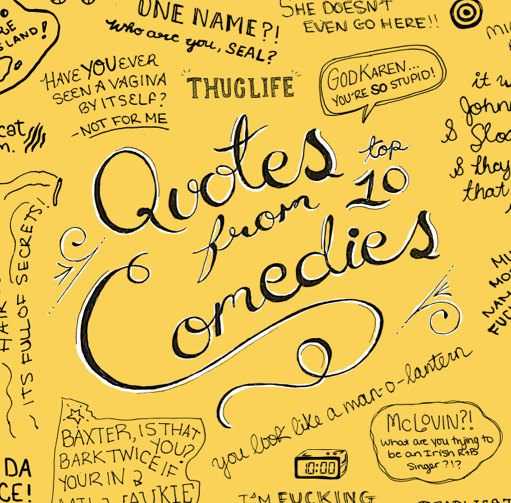 ONE NAME?!
Who are you, SEAL?
SHE DOESN'T
EVEN GO HERE!!
ISLAND!
HAVE YOU EVER
SEEN A VAGINA
BY ITSELF?
-NOT FOR ME
"THUG LIFE"
GOD KAREN...
YOU'RE SO STUPID!
it w
John
S Sloa
S they
that
cat
m.
Quotes
from top
10
Comedies
HAIR
ITS FULL OF SECRETS!
MO
NAN
FUC
you look like a man-o-lantern
McLOVIN?!
What are you trying to
be an Irish R+B
Singer?!?
BAXTER, IS THAT
YOU?
BARK TWICE IF
YOUR IN
10:00
DA
CE!
I'M FUCKING